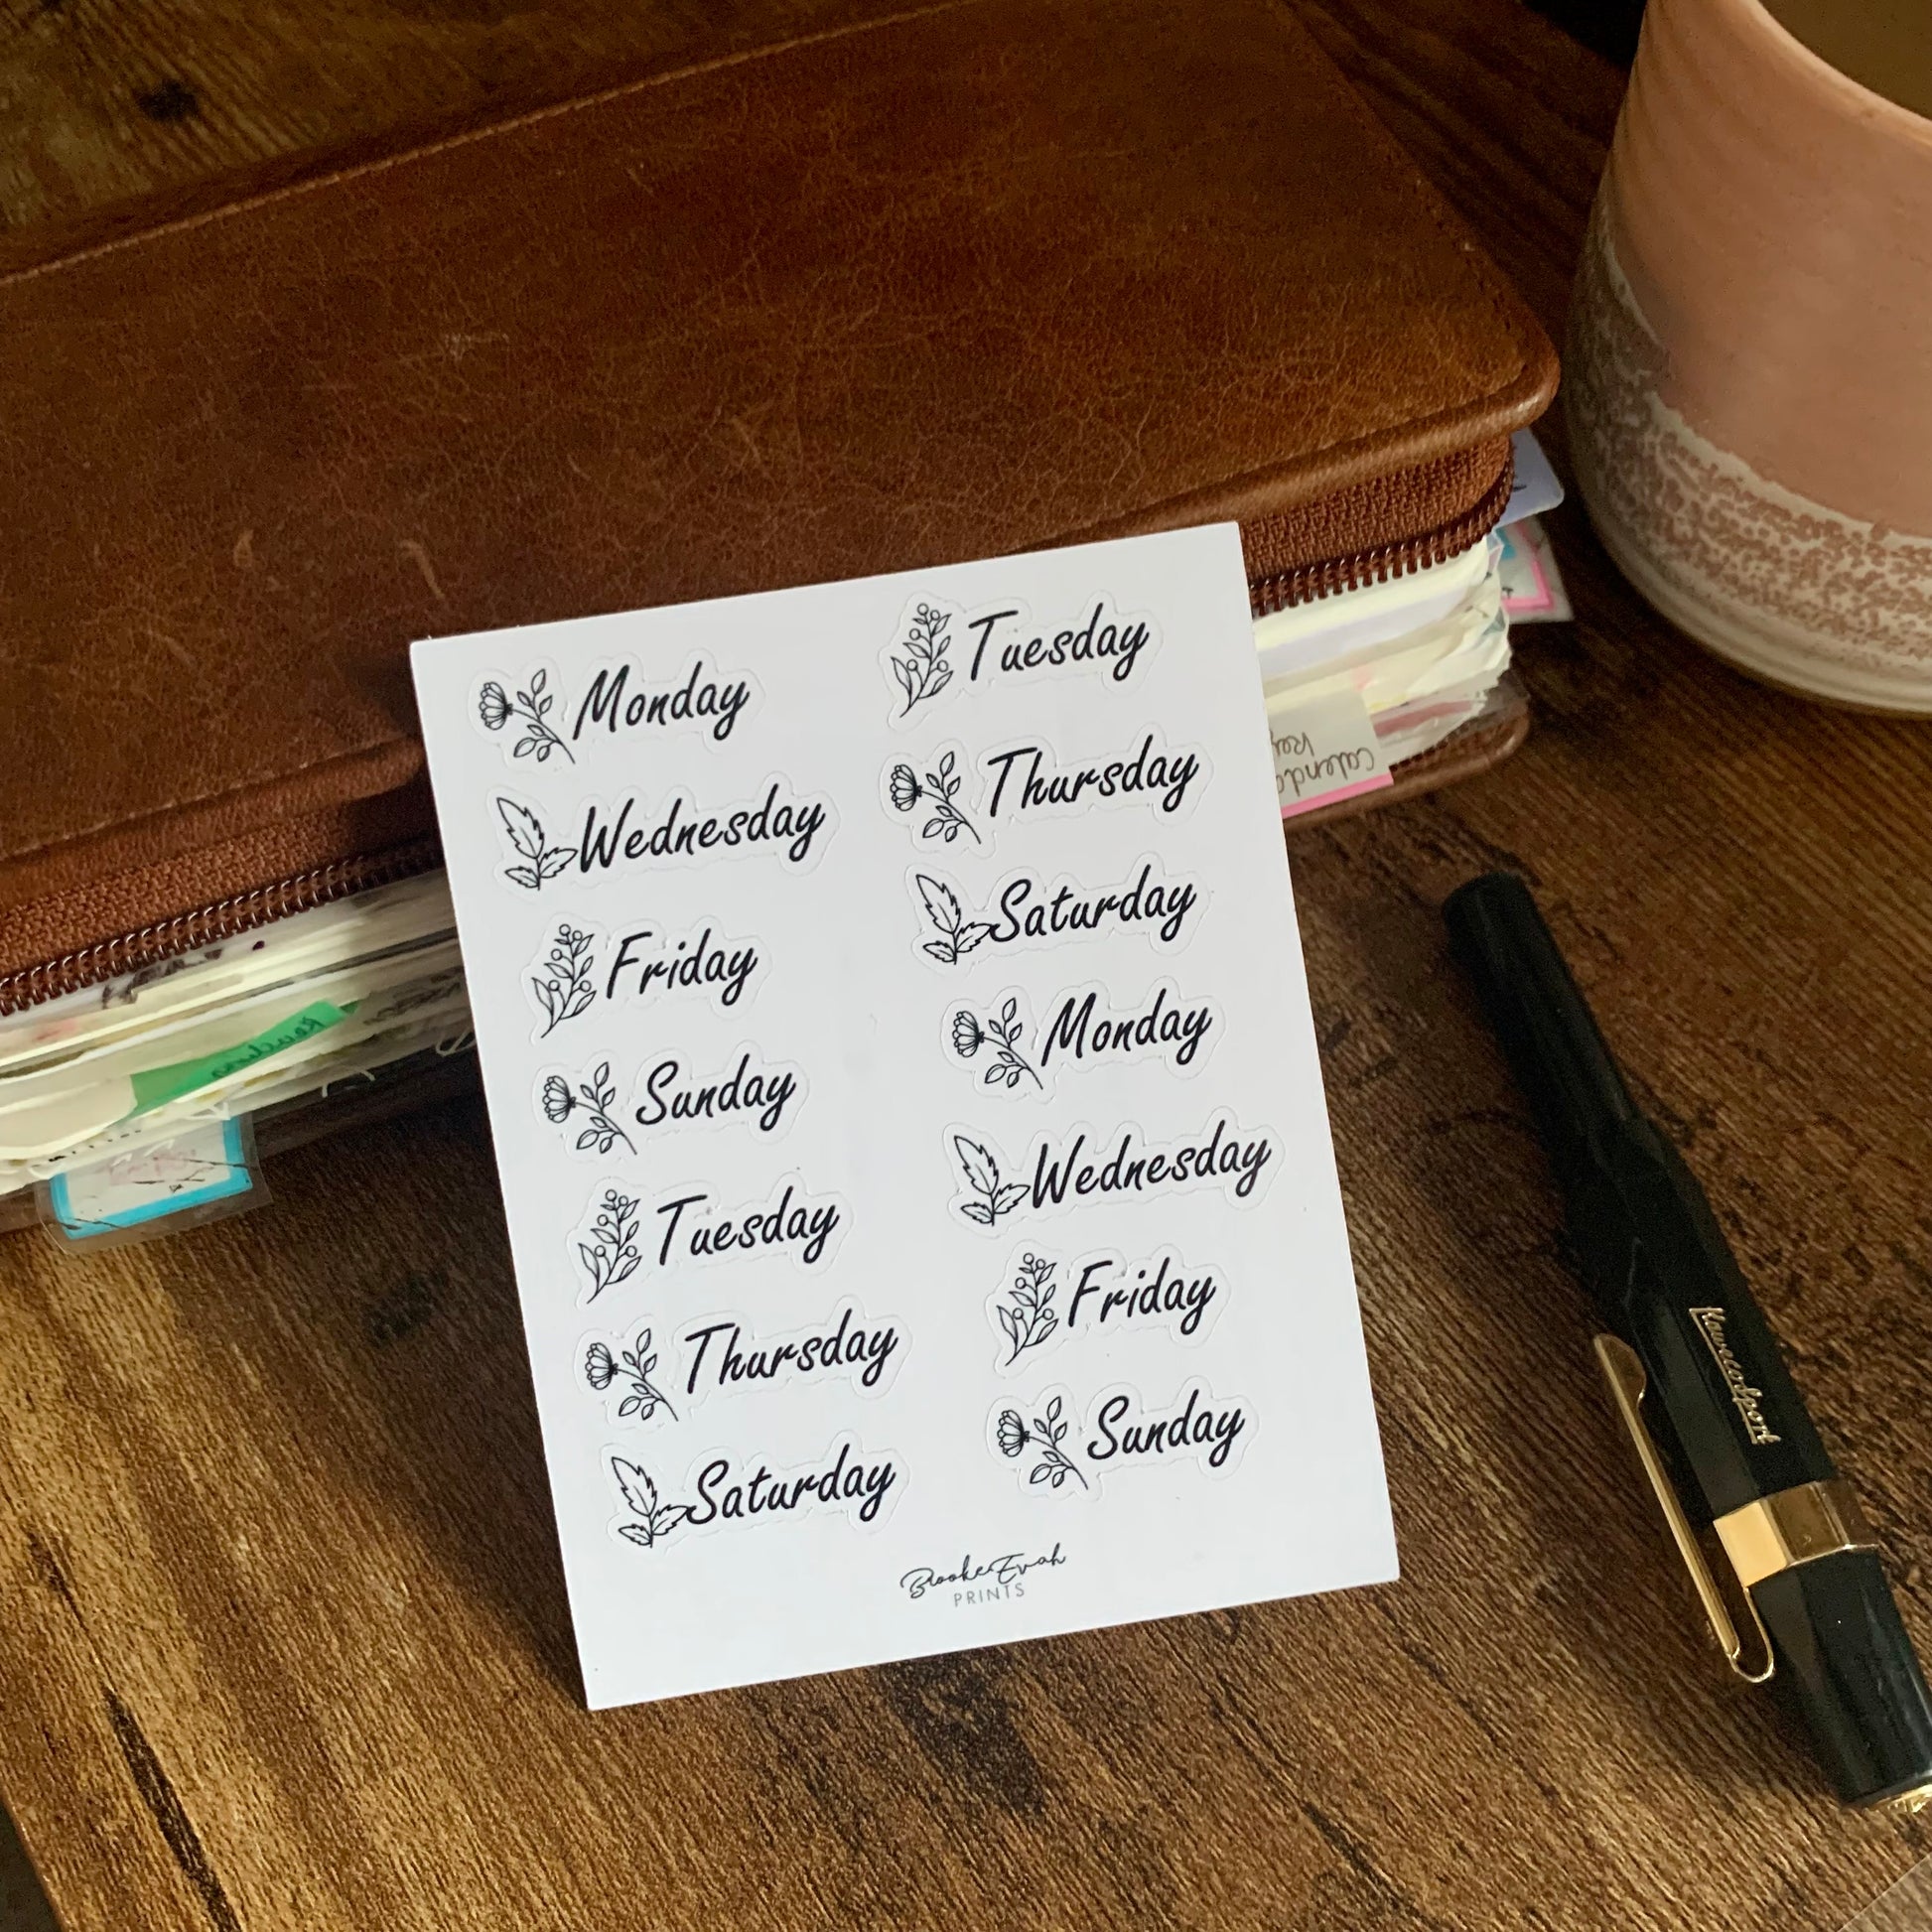 Monday
Tuesday
Wednesday
Thursday
Friday
Saturday
Sunday
Monday
Tuesday
Wednesday
Thursday
Friday
Saturday
Sunday
BrookeEvah
PRINTS
Kaweco Sport